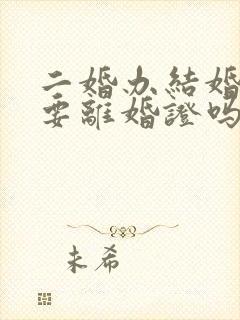 二婚办結婚
要離婚證嗎
未希